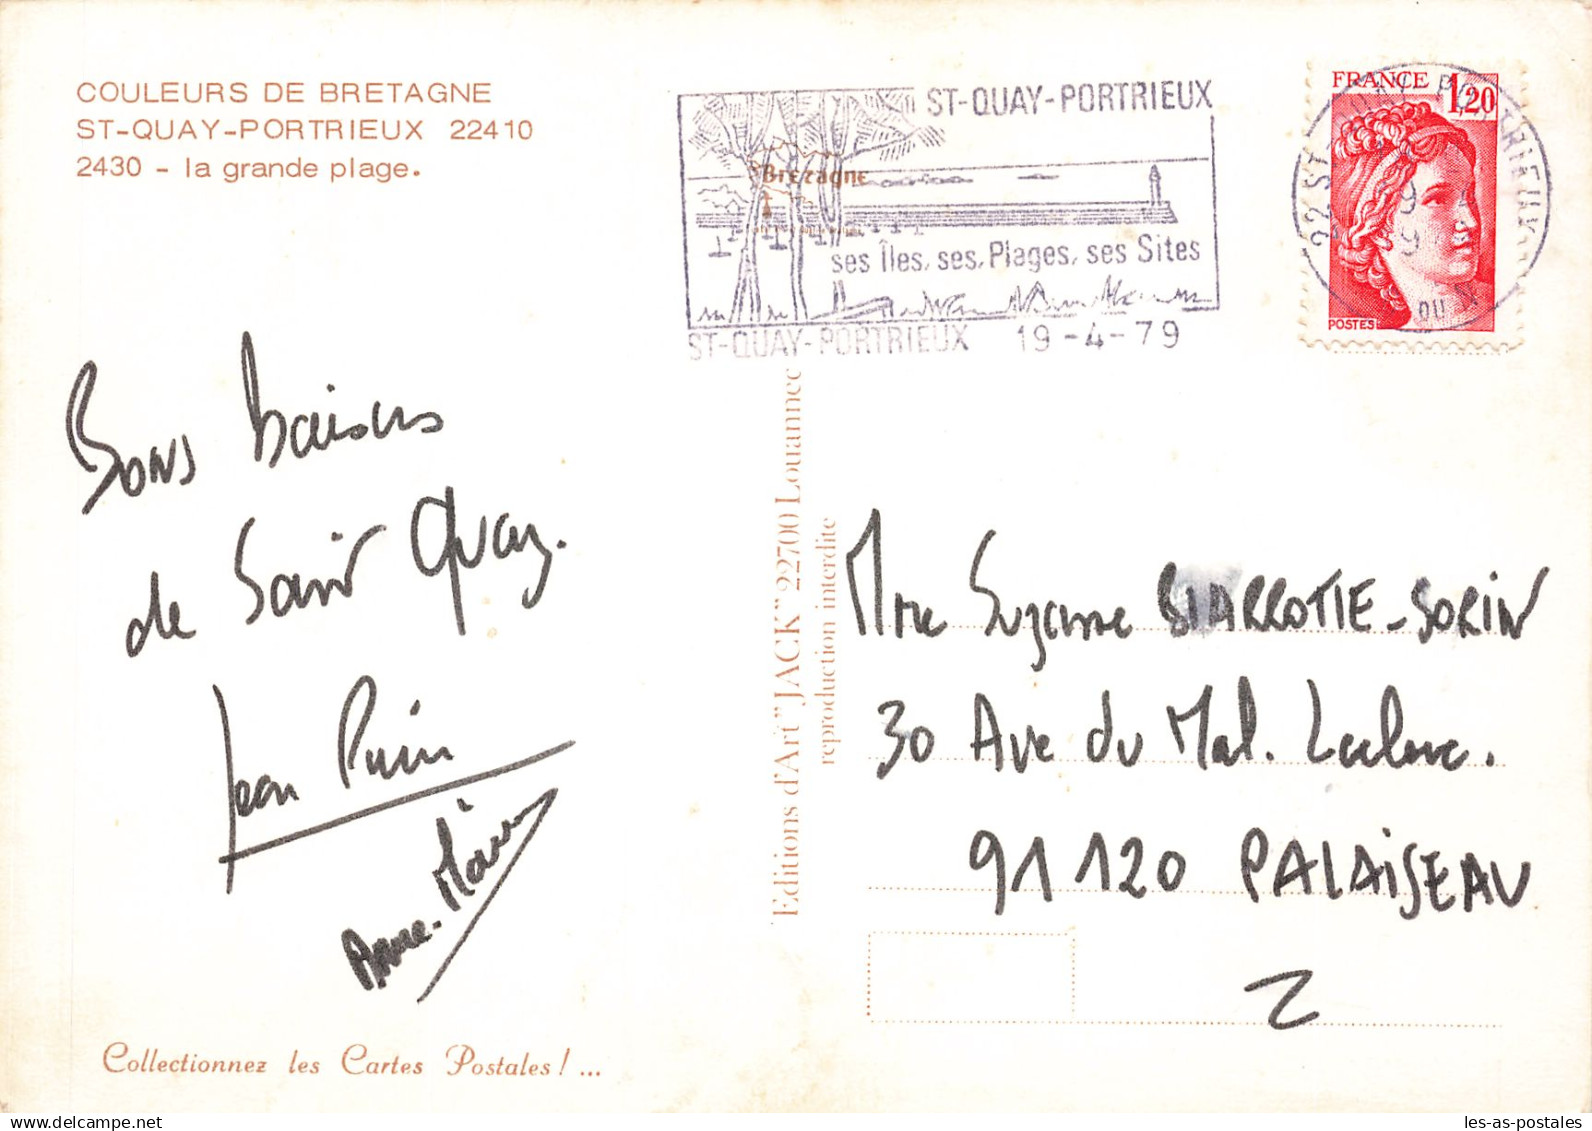 COULEURS DE BRETAGNE
ST-QUAY-PORTRIEUX 22410
2430 - la grande plage.
ST-QUAY-PORTRIEUX
Bretagne
ses Îles, ses Plages, ses Sites
ST-QUAY-PORTRIEUX 19-4-79
FRANCE 1,20
POSTES
22 ST QUAY PORTRIEUX
Bons baisers
de Saint Quay.
Anne-Marie
Editions d'Art "JACK" 22700 Louannec
reproduction interdite
Mme Suzanne BIARROTTE-SORIN
30 Ave du Mal. Leclerc.
91120 PALAISEAU
Collectionnez les Cartes Postales ! ...
les-as-postales